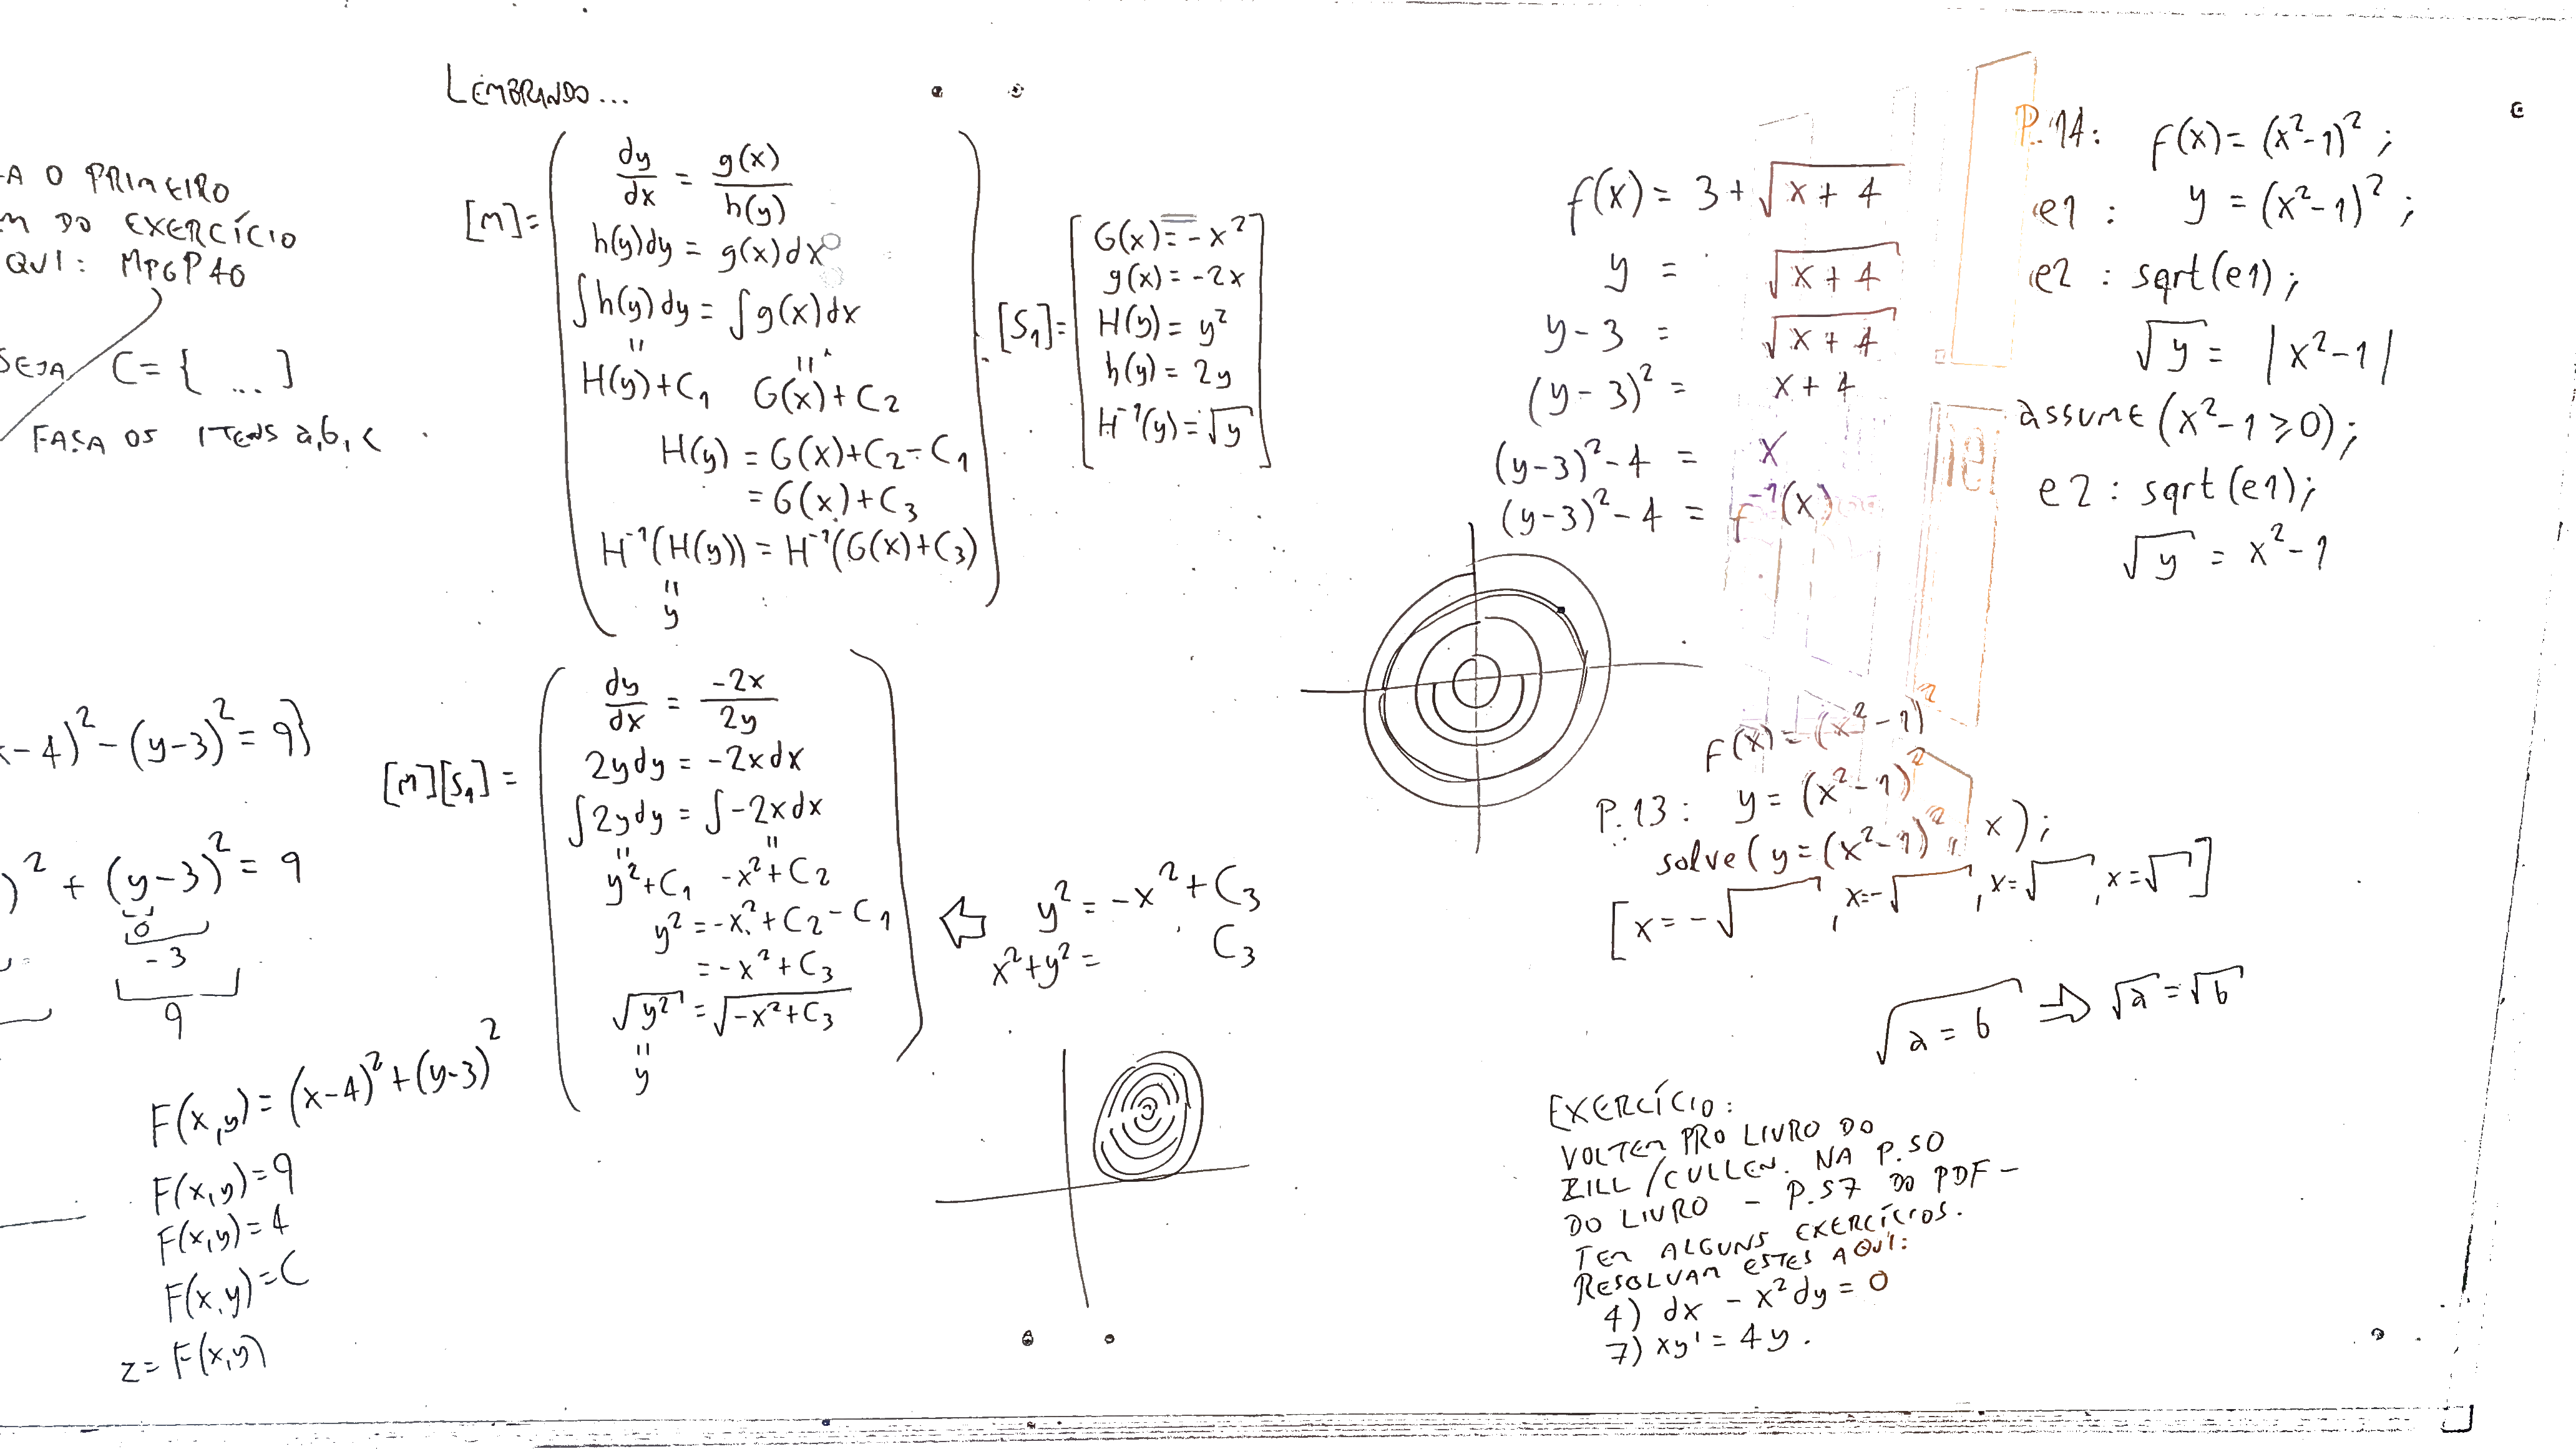 -A O PRIMEIRO
M DO EXERCÍCIO
QUI: MPGP40
SEJA C={ ... }
FAÇA OS ITENS a,b,c
x-4)²-(y-3)²=9}
)²+(y-3)²=9
0
-3
9
F(x,y)=(x-4)²+(y-3)²
F(x,y)=9
F(x,y)=4
F(x,y)=C
z=F(x,y)
LEMBRANDO...
[M]=
dy/dx = g(x)/h(y)
h(y)dy = g(x)dx
∫h(y)dy = ∫g(x)dx
" "
H(y)+C₁ G(x)+C₂
H(y) = G(x)+C₂-C₁
= G(x)+C₃
H⁻¹(H(y)) = H⁻¹(G(x)+C₃)
"
y
[S₁]=
G(x)=-x²
g(x)=-2x
H(y)=y²
h(y)=2y
H⁻¹(y)=√y
[M][S₁]=
dy/dx = -2x/2y
2ydy = -2xdx
∫2ydy = ∫-2xdx
" "
y²+C₁ -x²+C₂
y²=-x²+C₂-C₁
=-x²+C₃
√y² = √-x²+C₃
"
y
y²=-x²+C₃
x²+y²= C₃
f(x) = 3+√x+4
y = √x+4
y-3 = √x+4
(y-3)² = x+4
(y-3)²-4 = x
(y-3)²-4 = f⁻¹(x)
P.14: f(x)=(x²-1)²;
e1 : y=(x²-1)²;
e2 : sqrt(e1);
√y = |x²-1|
assume(x²-1≥0);
e2 : sqrt(e1);
√y = x²-1
f(x)=(x²-1)²
P.13: y=(x²-1)²
solve(y=(x²-1)², x);
[x=-√ , x=-√ , x=√ , x=√ ]
√a=b ⇒ √a=√b
EXERCÍCIO:
VOLTEM PRO LIVRO DO
ZILL/CULLEN. NA P.50
DO LIVRO - P.57 DO PDF -
TEM ALGUNS EXERCÍCIOS.
RESOLVAM ESTES AQUI:
4) dx - x²dy=0
7) xy'=4y.